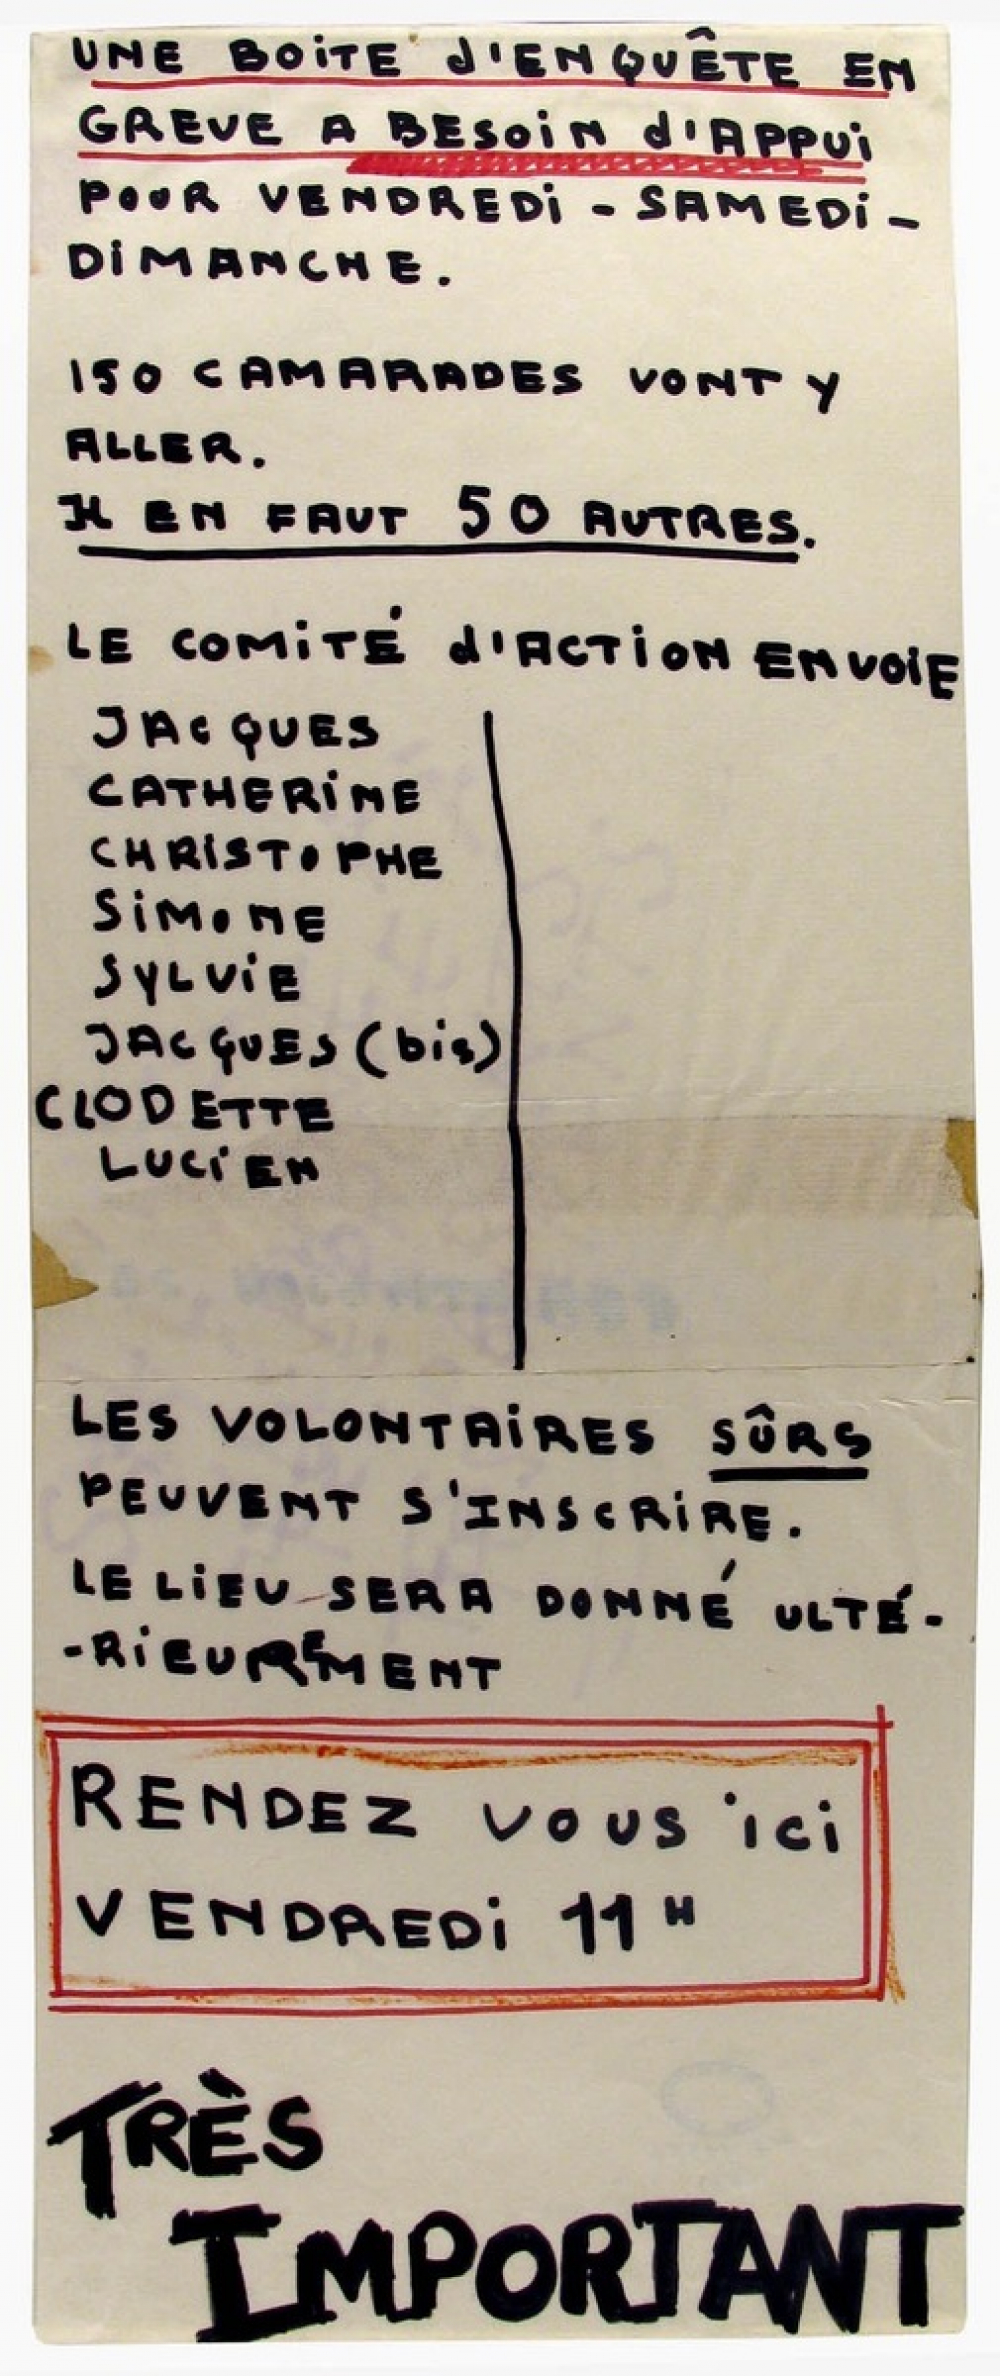 UNE BOiTE d'ENQUÊTE EN
GREVE A BESOiN d'APPUi
POUR VENDREDi - SAMEDi -
DiMANCHE.
150 CAMARADES VONT Y
ALLER.
IL EN FAUT 50 AUTRES.
LE COMiTÉ d'ACTiON ENVOiE
JACQUES
CATHERiNE
CHRiSTOPHE
SiMONE
SYLViE
JACQUES (bis)
CLODETTE
LUCiEN
LES VOLONTAiRES SÛRS
PEUVENT S'INSCRiRE.
LE LiEU SERA DONNÉ ULTÉ-
-RiEUREMENT
RENDEZ VOUS ici
VENDREDi 11H
TRÈS
IMPORTANT